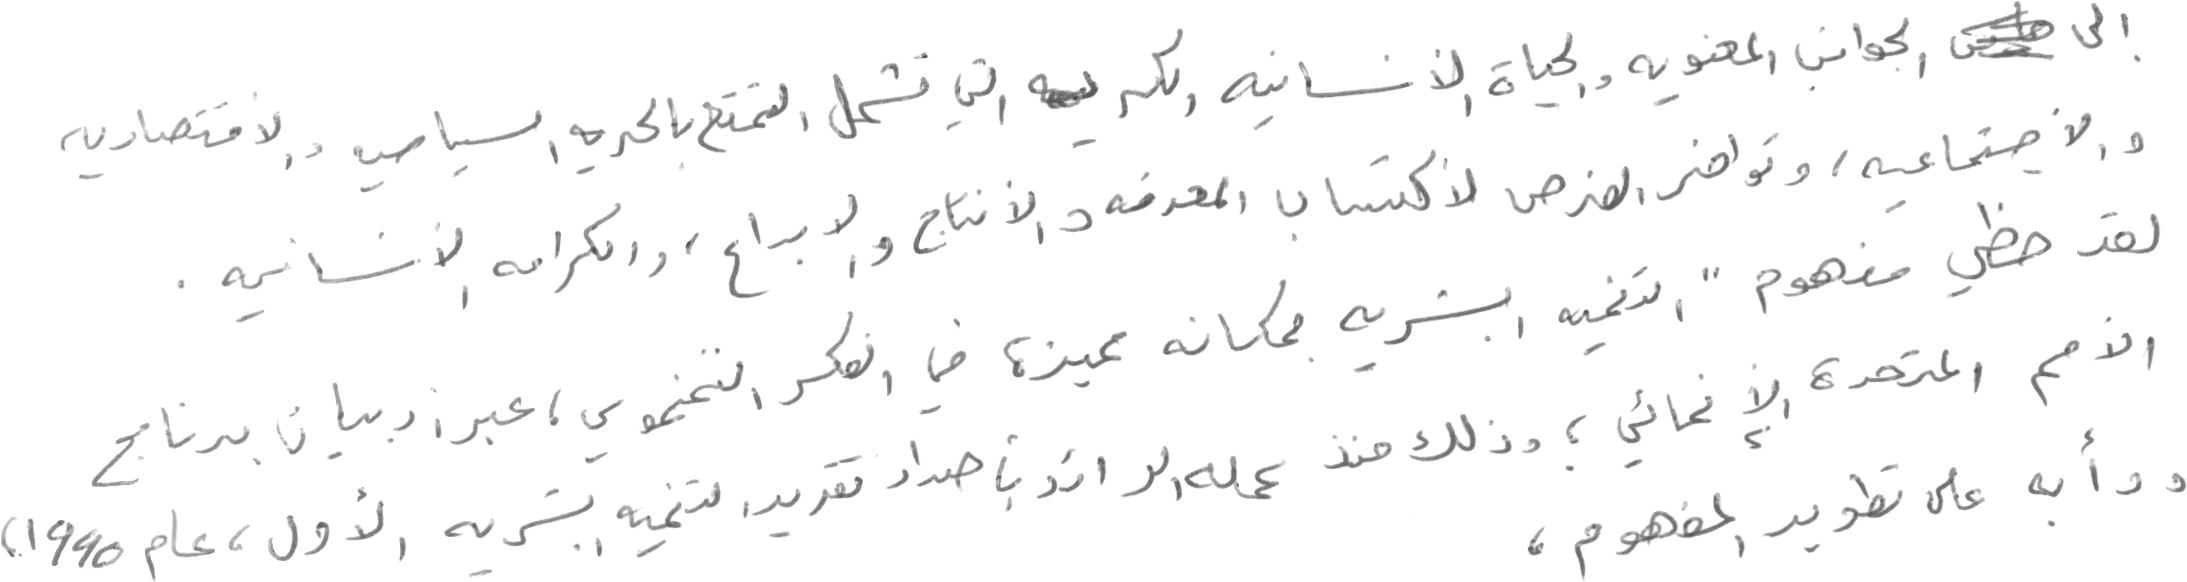 إلى الجوانب المعنويه والحياة الأنسانيه الكريمه التي تشمل التمتع بالحريه السياسيه والاقتصاديه
والاجتماعيه، وتوافر الفرص لأكتساب المعرفه والأنتاج والابداع، والكرامه الأنسانيه.
لقد حظي مفهوم "التنميه البشريه بمكانه مميزة في الفكر التنموي، عبر أدبيات برنامج
الأمم المتحدة الإنمائي؛ وذلك منذ عمله الرائد بأصدار تقرير التنميه البشريه الأول، عام 1990)،
ودأبه على تطوير المفهوم،